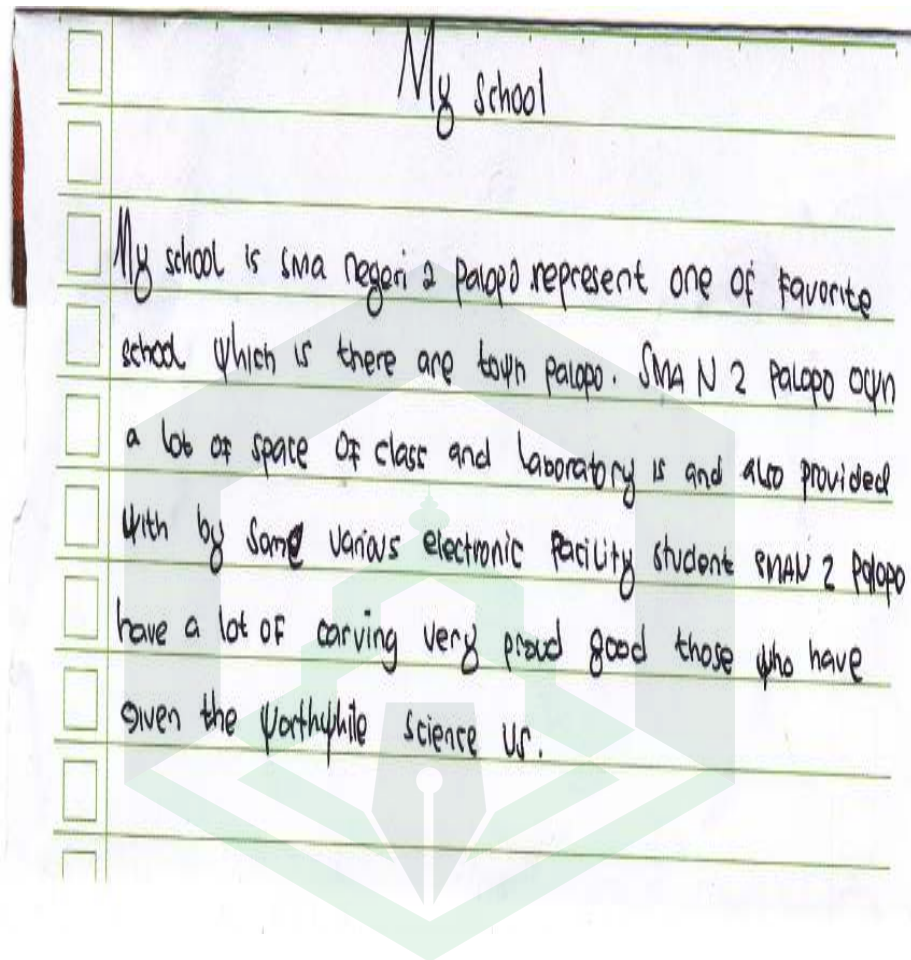 My school
My school is SMA negeri 2 palopo represent one of favorite
school which is there are town palopo. SMA N 2 palopo own
a lot of space of class and laboratory is and also provided
with by some various electronic facility student SMAN 2 Palopo
have a lot of carving very proud good those who have
given the worthwhile science us.